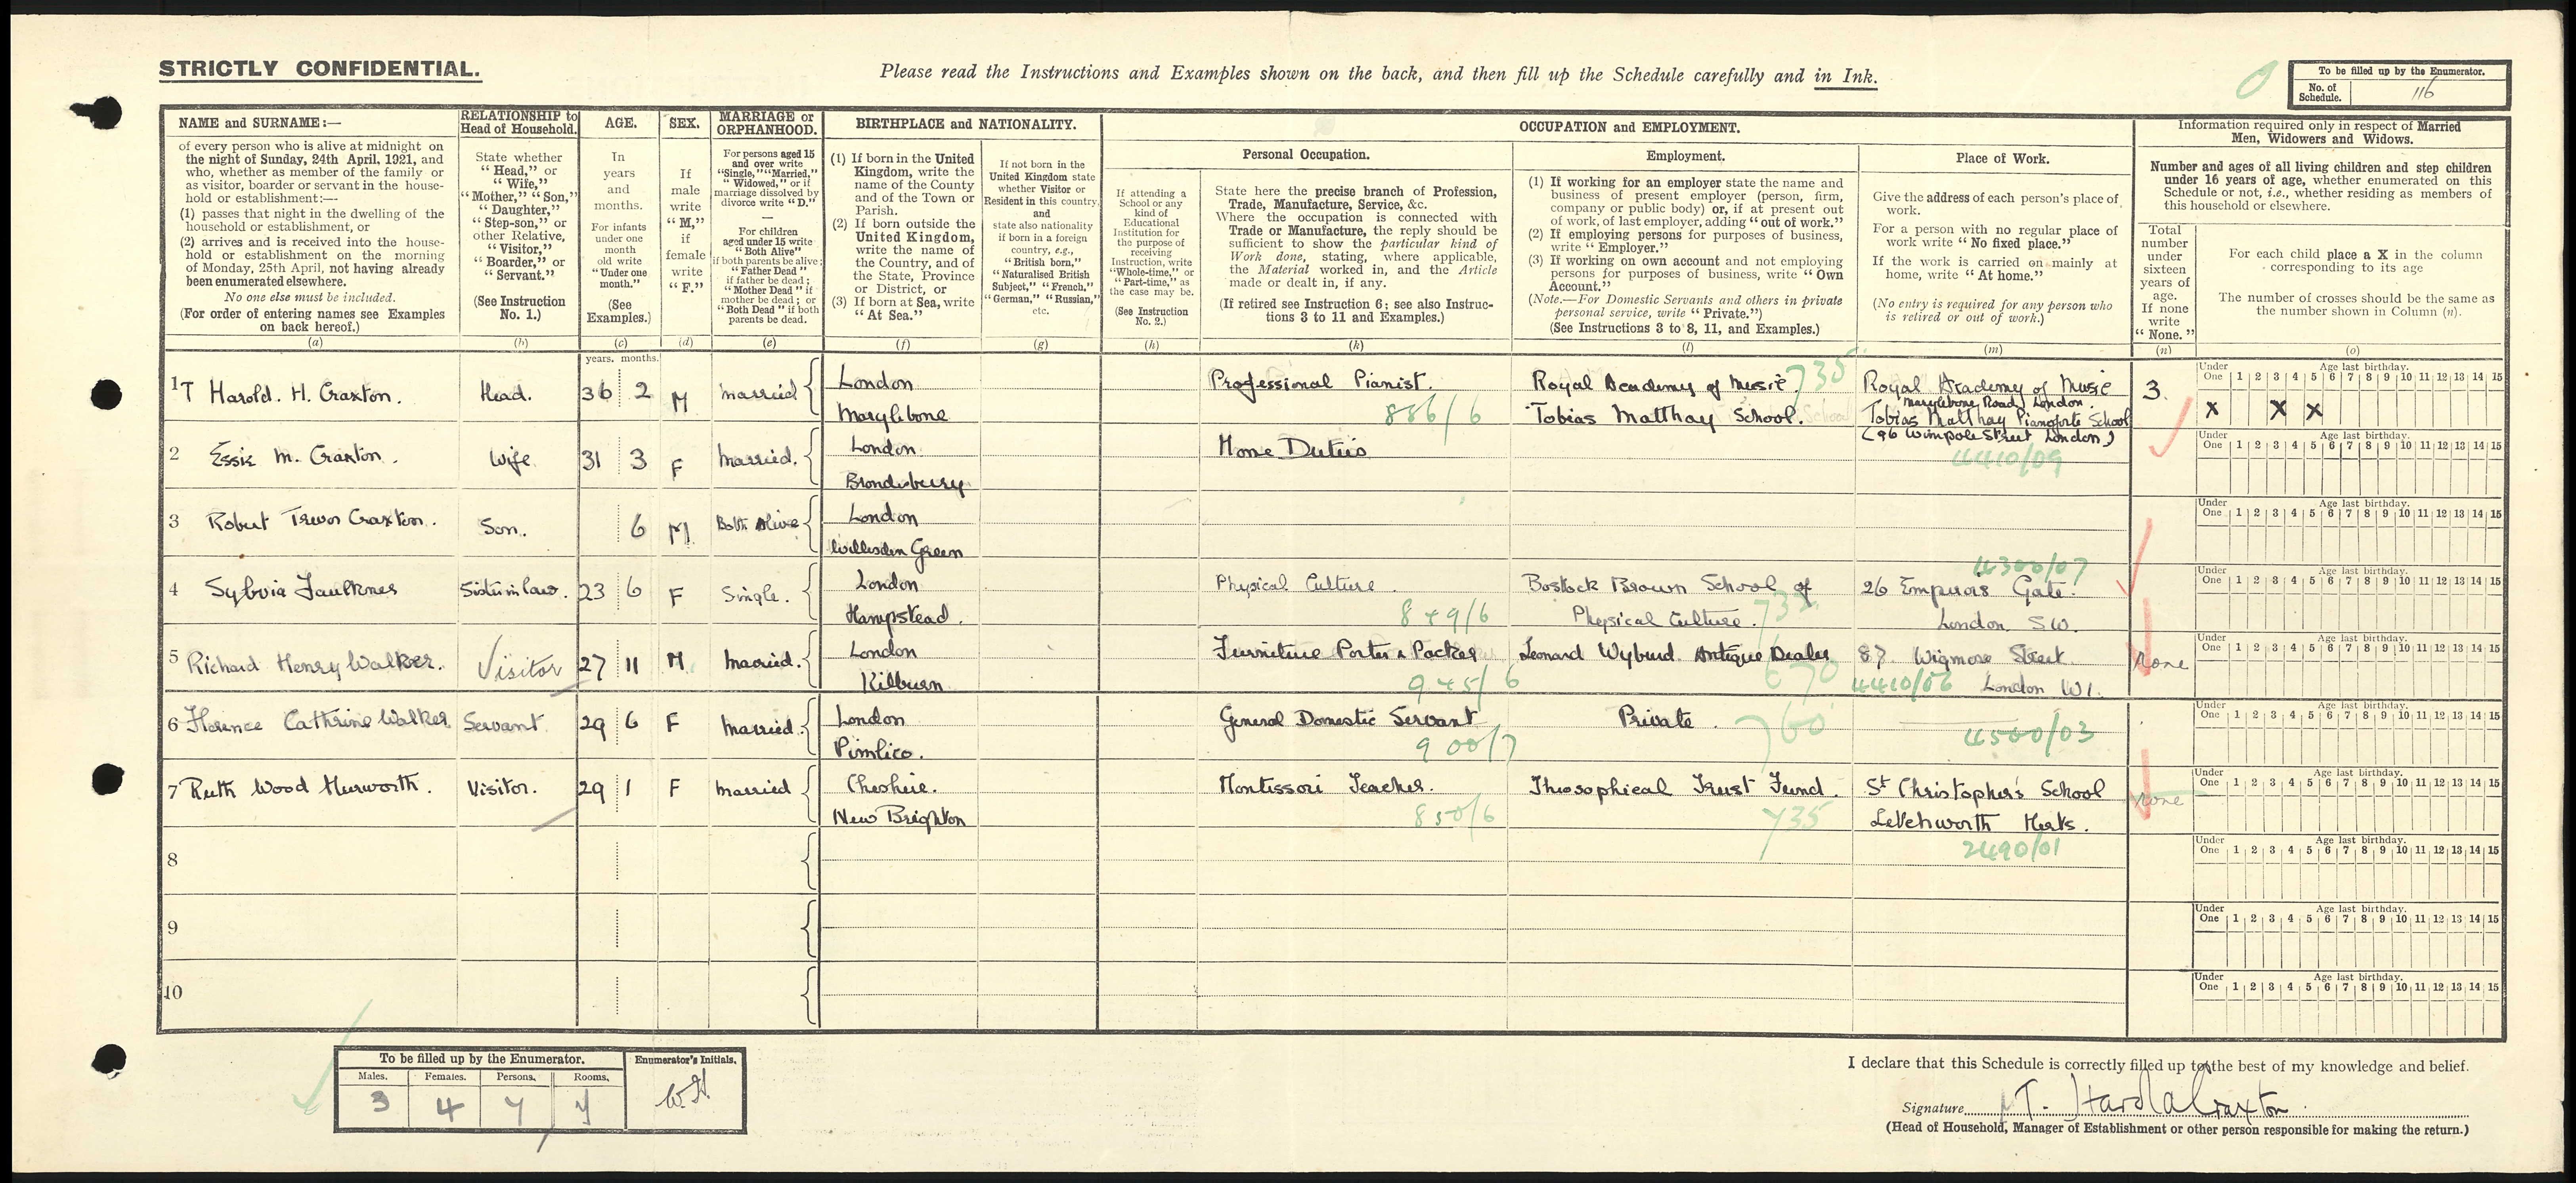 STRICTLY CONFIDENTIAL.
Please read the Instructions and Examples shown on the back, and then fill up the Schedule carefully and in Ink.
To be filled up by the Enumerator.
No. of Schedule. 116
NAME and SURNAME:—
of every person who is alive at midnight on
the night of Sunday, 24th April, 1921, and
who, whether as member of the family or
as visitor, boarder or servant in the house-
hold or establishment:—
(1) passes that night in the dwelling of the
household or establishment, or
(2) arrives and is received into the house-
hold or establishment on the morning
of Monday, 25th April, not having already
been enumerated elsewhere.
No one else must be included.
(For order of entering names see Examples
on back hereof.)
(a)
RELATIONSHIP to
Head of Household.
State whether
"Head," or
"Wife,"
"Mother," "Son,"
"Daughter,"
"Step-son," or
other Relative,
"Visitor,"
"Boarder," or
"Servant."
(See Instruction
No. 1.)
(b)
AGE.
In
years
and
months.
For infants
under one
month
old write
"Under one
month."
(See
Examples.)
(c)
years. months.
SEX.
If
male
write
"M,"
if
female
write
"F."
(d)
MARRIAGE or
ORPHANHOOD.
For persons aged 15
and over write
"Single," "Married,"
"Widowed," or if
marriage dissolved by
divorce write "D."
—
For children
aged under 15 write
"Both Alive"
if both parents be alive;
"Father Dead"
if father be dead;
"Mother Dead" if
mother be dead; or
"Both Dead" if both
parents be dead.
(e)
BIRTHPLACE and NATIONALITY.
(1) If born in the United
Kingdom, write the
name of the County
and of the Town or
Parish.
(2) If born outside the
United Kingdom,
write the name of
the Country, and of
the State, Province
or District, or
(3) If born at Sea, write
"At Sea."
(f)
If not born in the
United Kingdom state
whether Visitor or
Resident in this country,
and
state also nationality
if born in a foreign
country, e.g.,
"British born,"
"Naturalised British
Subject," "French,"
"German," "Russian,"
etc.
(g)
OCCUPATION and EMPLOYMENT.
If attending a
School or any
kind of
Educational
Institution for
the purpose of
receiving
Instruction, write
"Whole-time," or
"Part-time," as
the case may be.
(See Instruction
No. 2.)
(h)
Personal Occupation.
State here the precise branch of Profession,
Trade, Manufacture, Service, &c.
Where the occupation is connected with
Trade or Manufacture, the reply should be
sufficient to show the particular kind of
Work done, stating, where applicable,
the Material worked in, and the Article
made or dealt in, if any.
(If retired see Instruction 6; see also Instruc-
tions 3 to 11 and Examples.)
(k)
Employment.
(1) If working for an employer state the name and
business of present employer (person, firm,
company or public body) or, if at present out
of work, of last employer, adding "out of work."
(2) If employing persons for purposes of business,
write "Employer."
(3) If working on own account and not employing
persons for purposes of business, write "Own
Account."
(Note.—For Domestic Servants and others in private
personal service, write "Private.")
(See Instructions 3 to 8, 11, and Examples.)
(l)
Place of Work.
Give the address of each person's place of
work.
For a person with no regular place of
work write "No fixed place."
If the work is carried on mainly at
home, write "At home."
(No entry is required for any person who
is retired or out of work.)
(m)
Information required only in respect of Married
Men, Widowers and Widows.
Number and ages of all living children and step children
under 16 years of age, whether enumerated on this
Schedule or not, i.e., whether residing as members of
this household or elsewhere.
Total
number
under
sixteen
years of
age.
If none
write
"None."
(n)
For each child place a X in the column
corresponding to its age
The number of crosses should be the same as
the number shown in Column (n).
(o)
1 T Harold. H. Craxton. Head. 36 2 M Married London Marylebone
Professional Pianist. 886/6
Royal Academy of Music. 735
Tobias Matthay School.
Royal Academy of Music
Marylebone Road, London.
Tobias Matthay Pianoforte School
(96 Wimpole Street London)
4410/09
3. X X X
2 Essie M. Craxton. Wife 31 3 F Married. London Brondesbury Home Duties
3 Robert Trevor Craxton. Son. 6 M Both Alive London Willesden Green
4 Sylvia Faulkner Sister in law. 23 6 F Single. London Hampstead.
Physical Culture 849/6
Bostock Brown School of
Physical Culture.
4300/07
26 Emperors Gate.
London. S.W.
5 Richard Henry Walker. Visitor 27 11 M Married. London Kilburn
Furniture Porter & Packer 945/6
Leonard Wyburd Antique Dealer 670
87 Wigmore Street
4410/06 London W1.
None
6 Florence Cathrine Walker Servant 29 6 F Married. London Pimlico.
General Domestic Servant 900/7
Private. 760
4500/03
7 Ruth Wood Hurworth. Visitor. 29 1 F Married Cheshire. New Brighton
Montessori Teacher. 850/6
Theosophical Trust Fund. 735
St Christopher's School
Letchworth Herts.
2490/01
none
8
9
10
Under One 1 2 3 4 5 6 7 8 9 10 11 12 13 14 15
Age last birthday.
To be filled up by the Enumerator.
Males. Females. Persons. Rooms.
3 4 7 7
Enumerator's Initials.
W.H.
I declare that this Schedule is correctly filled up to the best of my knowledge and belief.
Signature T. Harold Craxton.
(Head of Household, Manager of Establishment or other person responsible for making the return.)